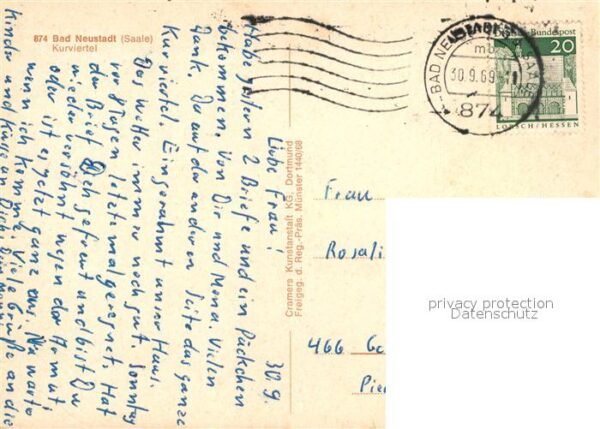 874 Bad Neustadt (Saale)
Kurviertel
30.9.
Liebe Frau!
Habe gestern 2 Briefe und ein Päckchen
bekommen. Von Dir und Mona. Vielen
Dank. Du auf der anderen Seite das ganze
Kurviertel. Eingerahmt unser Haus.
Das Wetter immer noch gut. Sonntag
vor 8 Tagen letztmal geregnet. Hat
der Brief Dich gefreut und bist Du
wieder versöhnt wegen der Armut
oder ist es jetzt ganz aus. Na warte
wenn ich komme. Viele Grüße an die
Kinder und Küsse an Dich. Dein
Cramers Kunstanstalt KG, Dortmund
Freigeg. d. Reg.-Präs. Münster 1440/68
BAD NEUSTADT
mb
30.9.69
874
Deutsche Bundespost
20
LORSCH/HESSEN
Frau
Rosali
466 Ge
privacy protection
Datenschutz